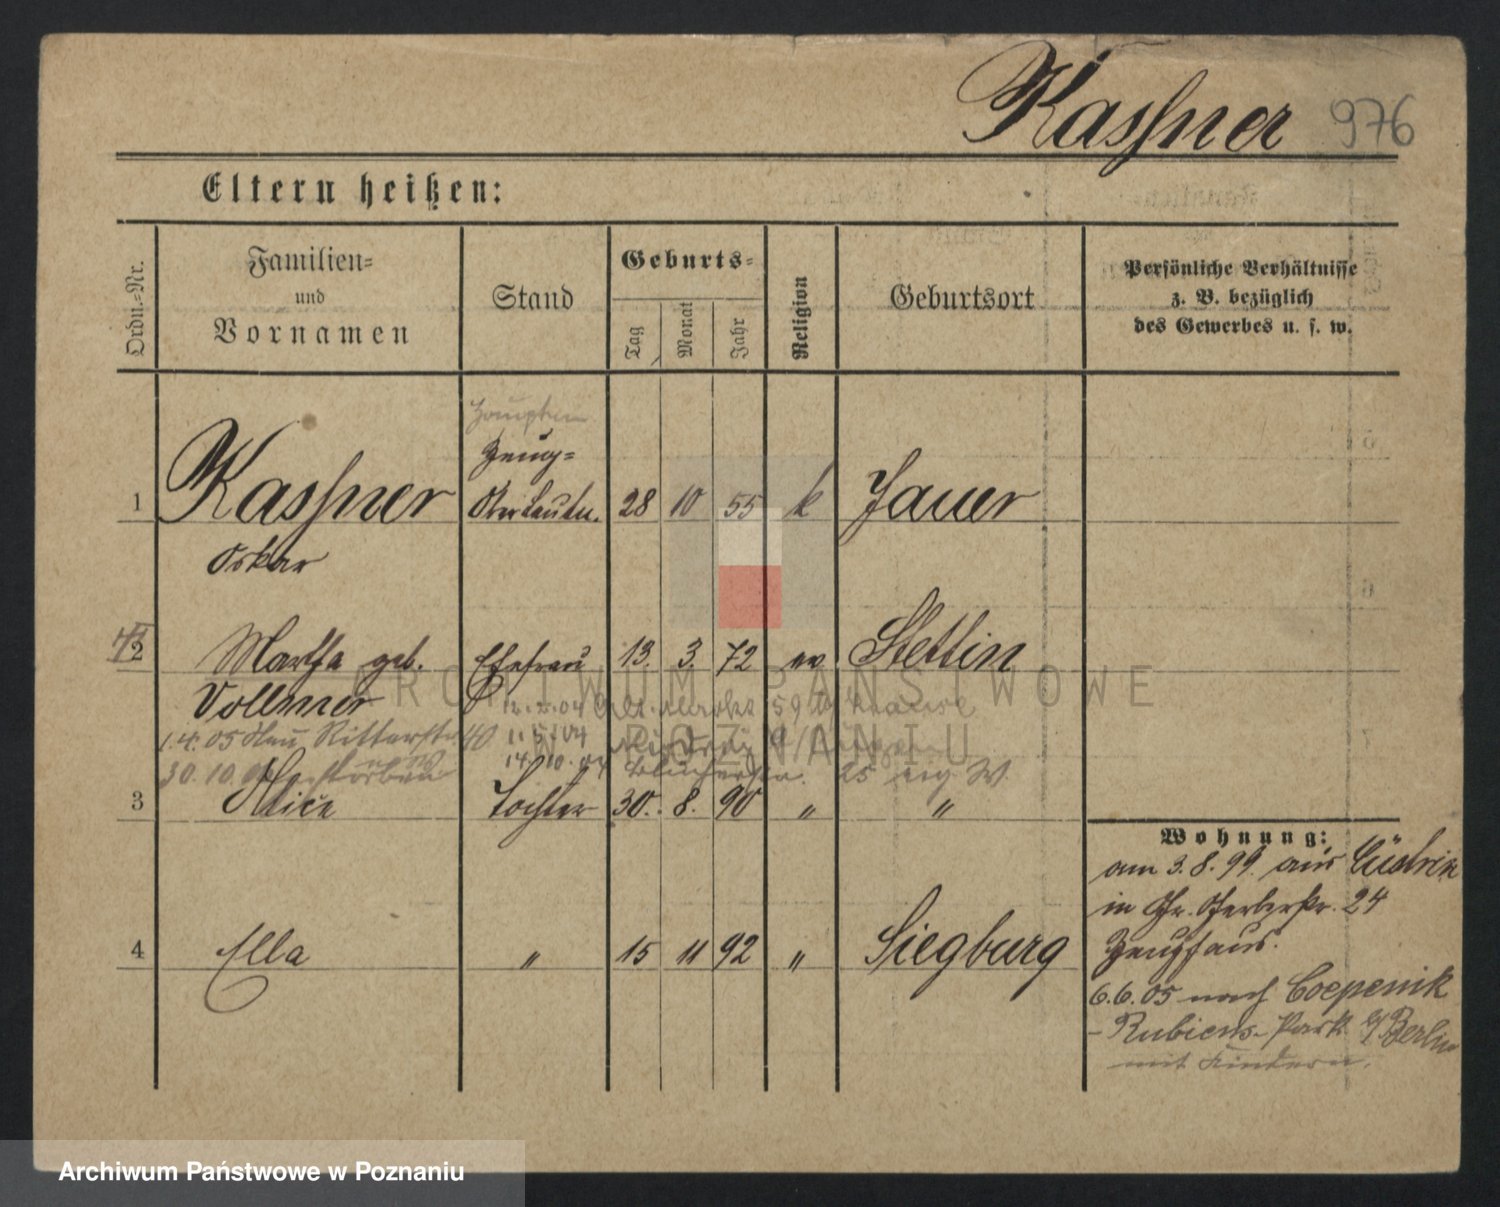 Kassner 976
Eltern heißen:
Ordn.-Nr.
Familien-
und
Vornamen
Stand
Geburts-
Tag
Monat
Jahr
Religion
Geburtsort
Persönliche Verhältnisse
z. B. bezüglich
des Gewerbes u. s. w.
Hauptm
Zeug-
1 Kassner Oberleutn. 28 10 55 k Jauer
Oskar
2 Martha geb. Ehefrau 13. 3. 72 ev Stettin
Vollmer
12.2.04 Markt 59
1.4.05 Ritterstr 40 11.5.04
30.10. 14.10.04 Blücherstr. 25 W.
3 Alice Tochter 30. 8. 90 " "
4 Ella " 15 11 92 " Siegburg
Wohnung:
am 3.8.99. aus Cüstrin
in Gr. Gerberstr. 24
Zeughaus.
6.6.05 nach Coepenik
- Rubiens-Park b/Berlin
mit Kindern.
ARCHIWUM PAŃSTWOWE
W POZNANIU
Archiwum Państwowe w Poznaniu